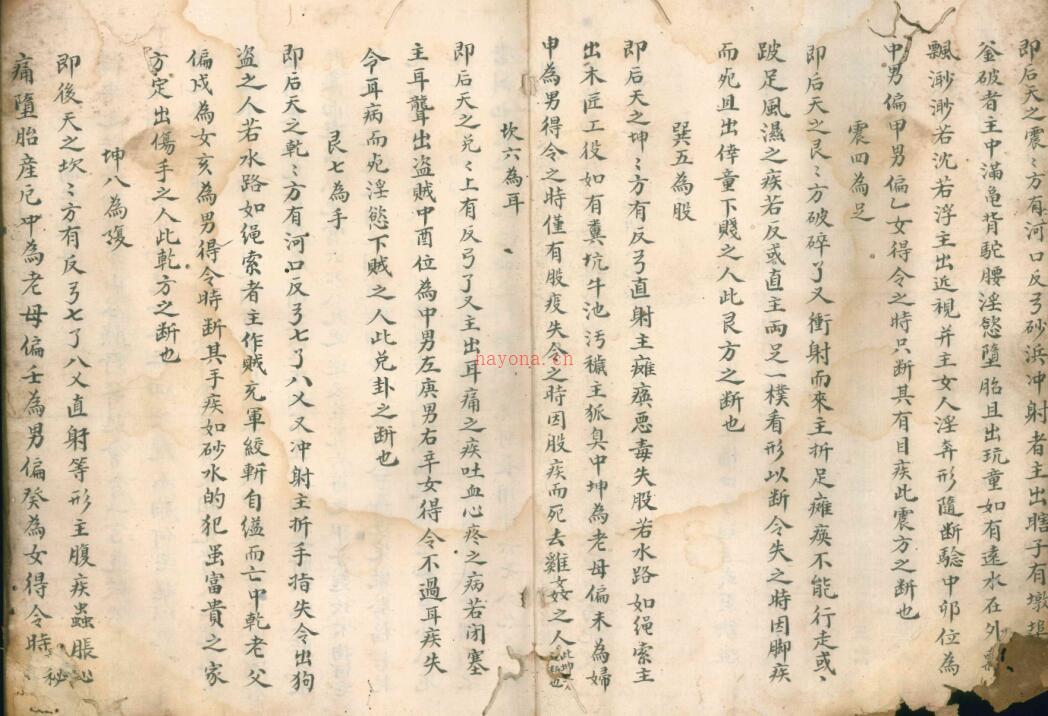 即后天之震〻方有河口反弓砂浜冲射者主出瞎子有墩埠
釜破者主中滿亀背駝腰淫慾墮胎且出玩童如有遠水在外
飄渺渺若沈若浮主出近視并主女人淫奔形隨断驗中卯位為
中男偏甲男偏乙女得令之時只断其有目疾此震方之断也
震四為足
即后天之艮〻方破碎了又衝射而來主折足癱瘓不能行走或
跛足風濕之疾若反或直主兩足一樸看形以断令失之時因脚疾
而死且出倖童下賤之人此艮方之断也
巽五為股
即后天之坤〻方有反弓直射主癱瘓悪毒失股若水路如绳索主
出木匠工役如有糞坑牛池汚穢主狐臭中坤為老母偏未為婦
申為男得令之時僅有股疫失令之時因股疾而死去雞姦之人
坎六為耳
即后天之兑〻上有反弓了又主出耳痛之疾吐血心疼之病若闭塞
主耳聾出盗賊中酉位為中男左庚男右辛女得令不過耳疾失
令耳病而死淫慾下贱之人此兑卦之断也
艮七為手
即后天之乾〻方有河口反弓七了八乂又冲射主折手指失令出狗
盗之人若水路如绳索者主作贼充軍絞斬自缢而亡中乾老父
偏戍為女亥為男得令時断其手疾如砂水的犯虽富貴之家
方定出傷手之人此乾方之断也
坤八為腹
即後天之坎〻方有反弓七了八乂直射等形主腹疾蟲脹心
痛墮胎産厄中為老母偏壬為男偏癸為女得令時
hayona.cn